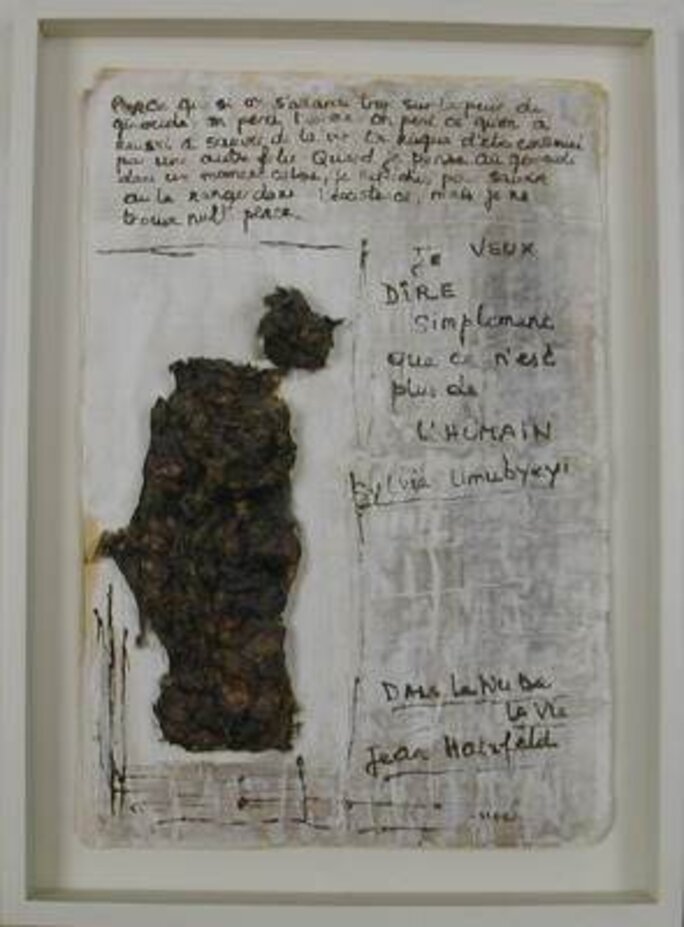 Parce que si on s'attarde trop sur la peur du
génocide on perd l'espoir. On perd ce qu'on a
réussi à sauver de la vie. On risque d'être contaminé
par une autre folie. Quand je pense au génocide
dans un moment calme, je réfléchis pour savoir
où le ranger dans l'existence, mais je ne
trouve nulle place.
Je VEUX
DIRE
simplement
que ce n'est
plus de
L'HUMAIN
Sylvie Umubyeyi
Dans Le Nu De
la Vie
Jean Hatzfeld